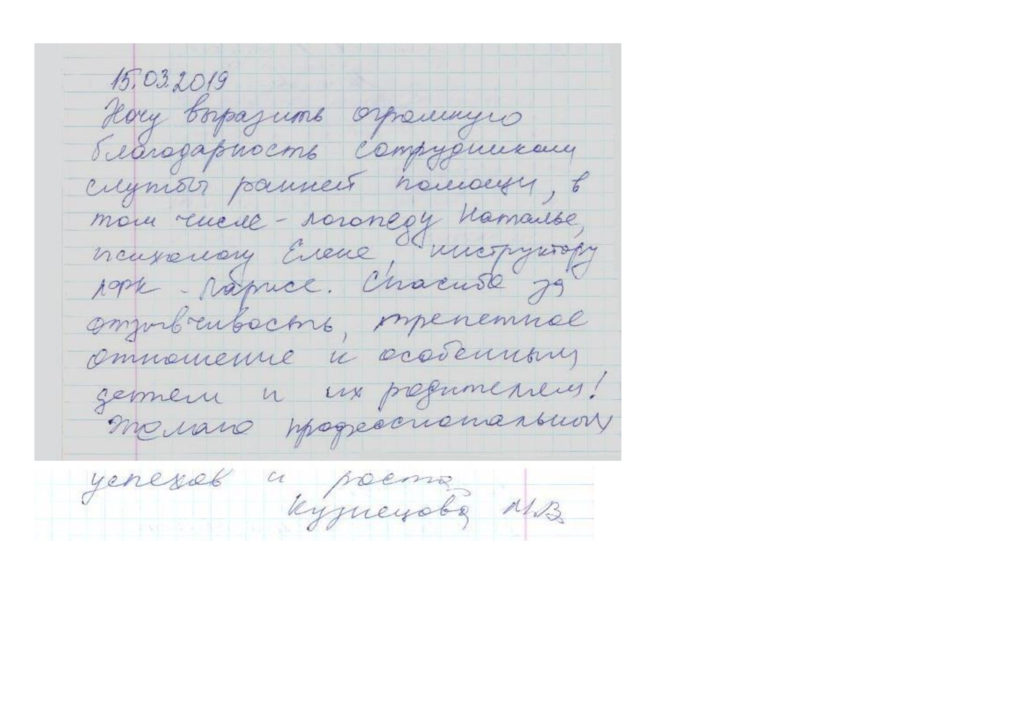 15.03.2019
Хочу выразить огромную
благодарность сотрудникам
службы ранней помощи, в
том числе - логопеду Наталье,
психологу Елене, инструктору
ЛФК - Ларисе. Спасибо за
отзывчивость, трепетное
отношение к особенным
детям и их родителям!
Желаю профессиональных
успехов и роста
Кузнецова М.В.